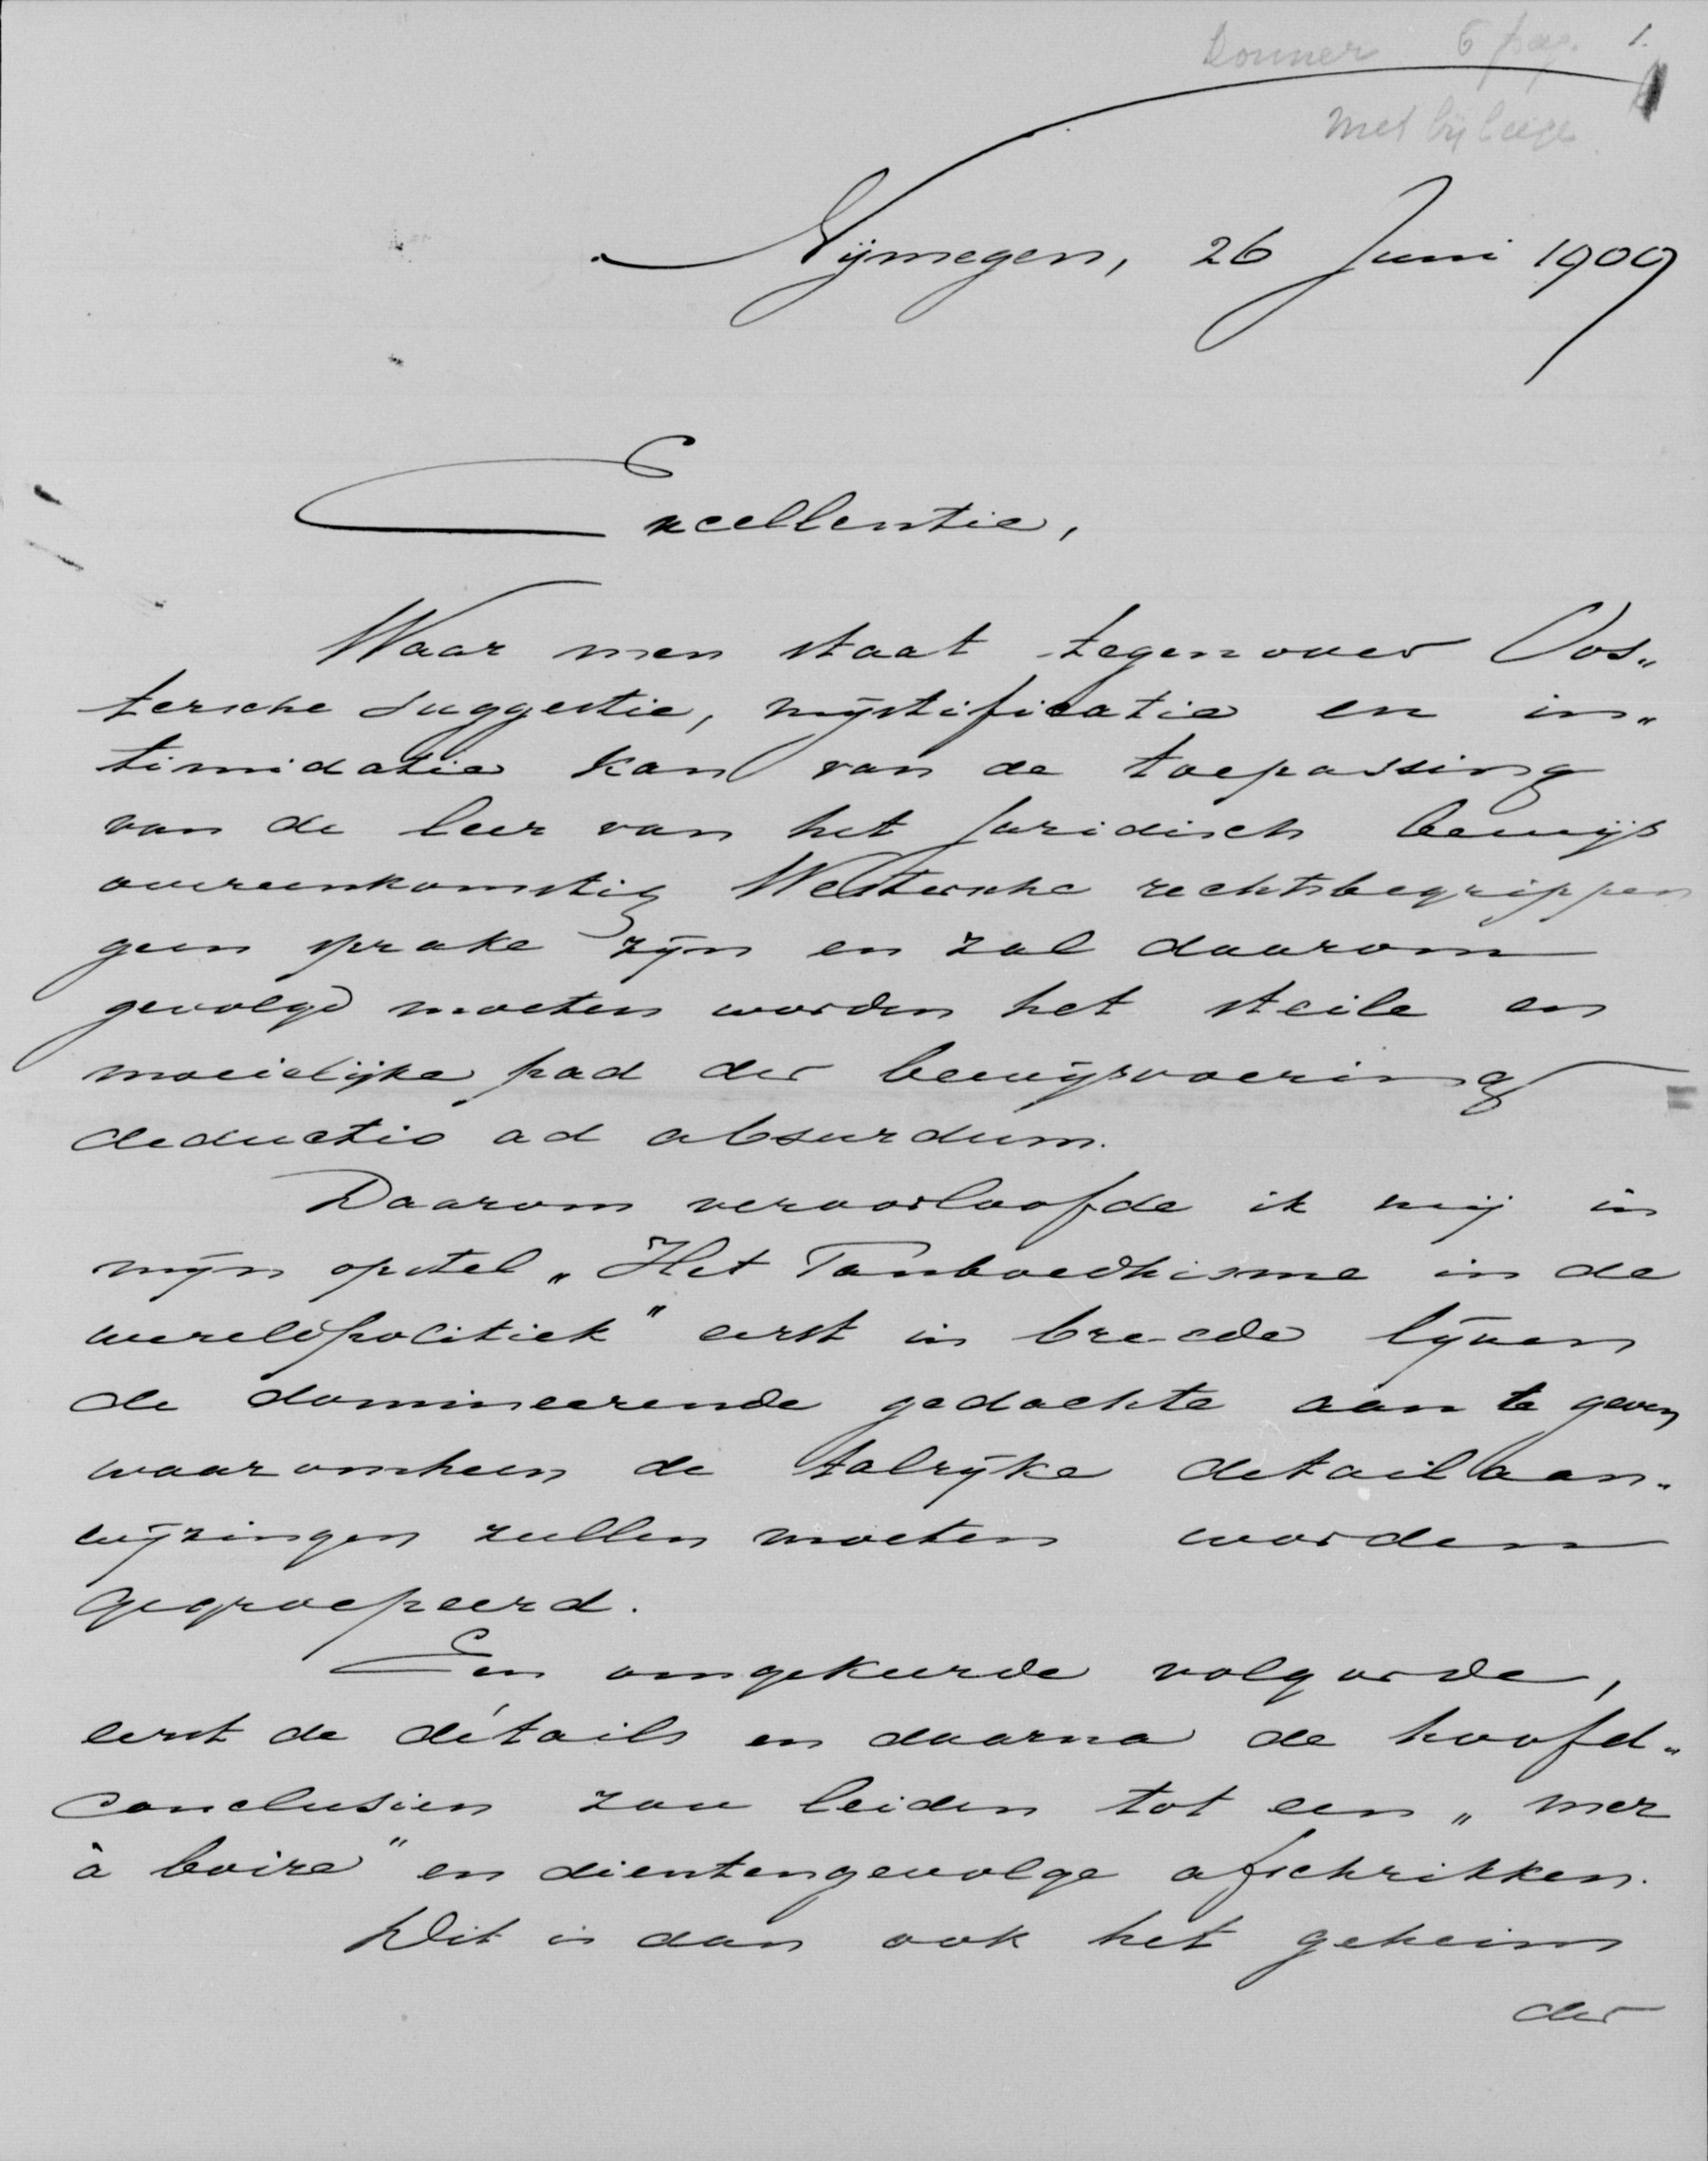 Donner 6 pag. 1.
met bijlage
Nijmegen, 26 Juni 1909
Excellentie,
Waar men staat tegenover Oos„
tersche suggestie, mystificatie en in„
timidatie kan van de toepassing
van de leer van het juridisch bewijs
overeenkomstig Westersche rechtsbegrippen
geen sprake zijn en zal daarom
gevolgd moeten worden het steile en
moeielijke pad der bewijsvoering
deductio ad absurdum.
Daarom veroorloofde ik mij in
mijn opstel „Het Panboedhisme in de
wereldpolitiek" eerst in breede lijnen
de domineerende gedachte aan te geven
waaromheen de talrijke detailaan„
wijzingen zullen moeten worden
gegroepeerd.
Een omgekeerde volgorde,
eerst de détails en daarna de hoofd„
conclusien zou leiden tot een „mer
à boire" en dientengevolge afschrikken.
Dit is dan ook het geheim
der